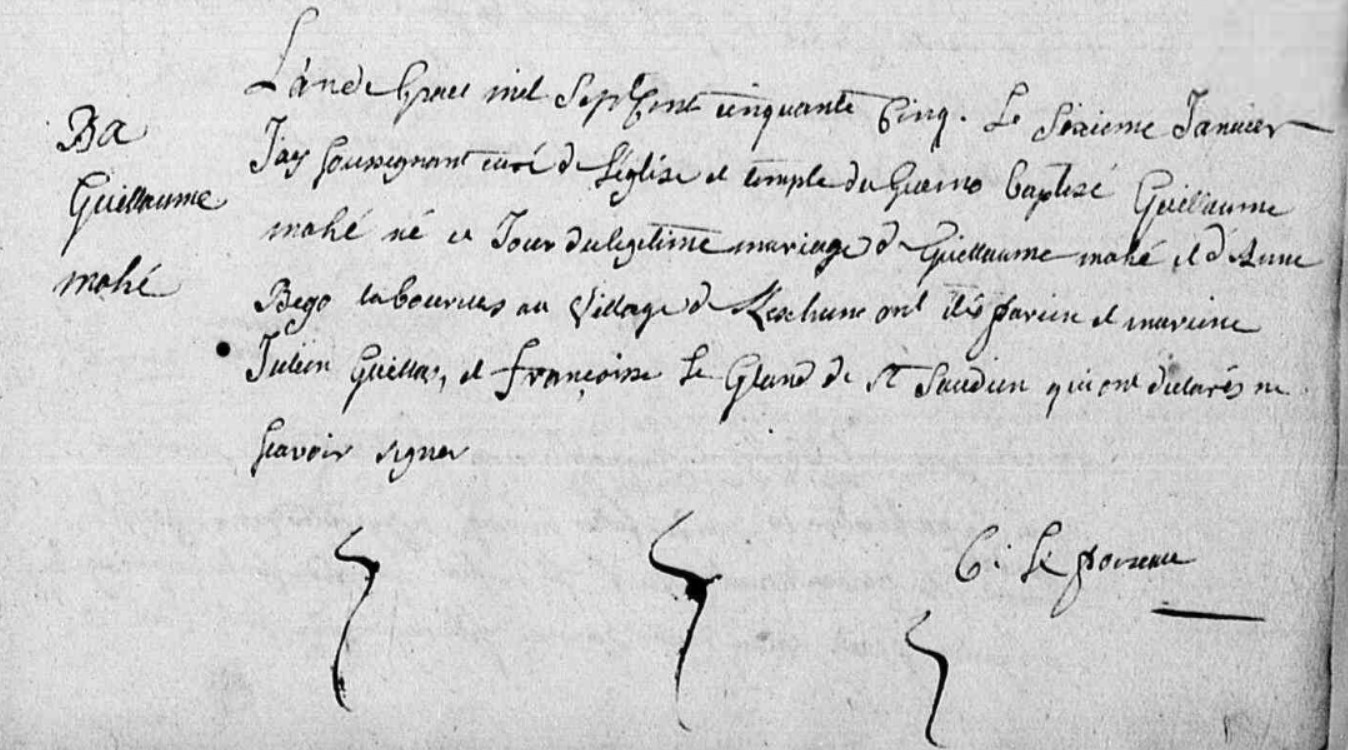 L'an de Grace mil Sept Cent cinquante Cinq. Le Sixieme Janvier
Ba
Guillaume
mahé
Jay soussignant curé de L'église et temple du Guerno baptisé Guillaume
mahé né ce Jour du legitime mariage de Guillaume mahé, et d'Anne
Bego laboureurs au Village de ont étés parein et mareine
Julien Guillas, et françoise Le Gland de St qui ont declarés ne
scavoir signer
C. Le